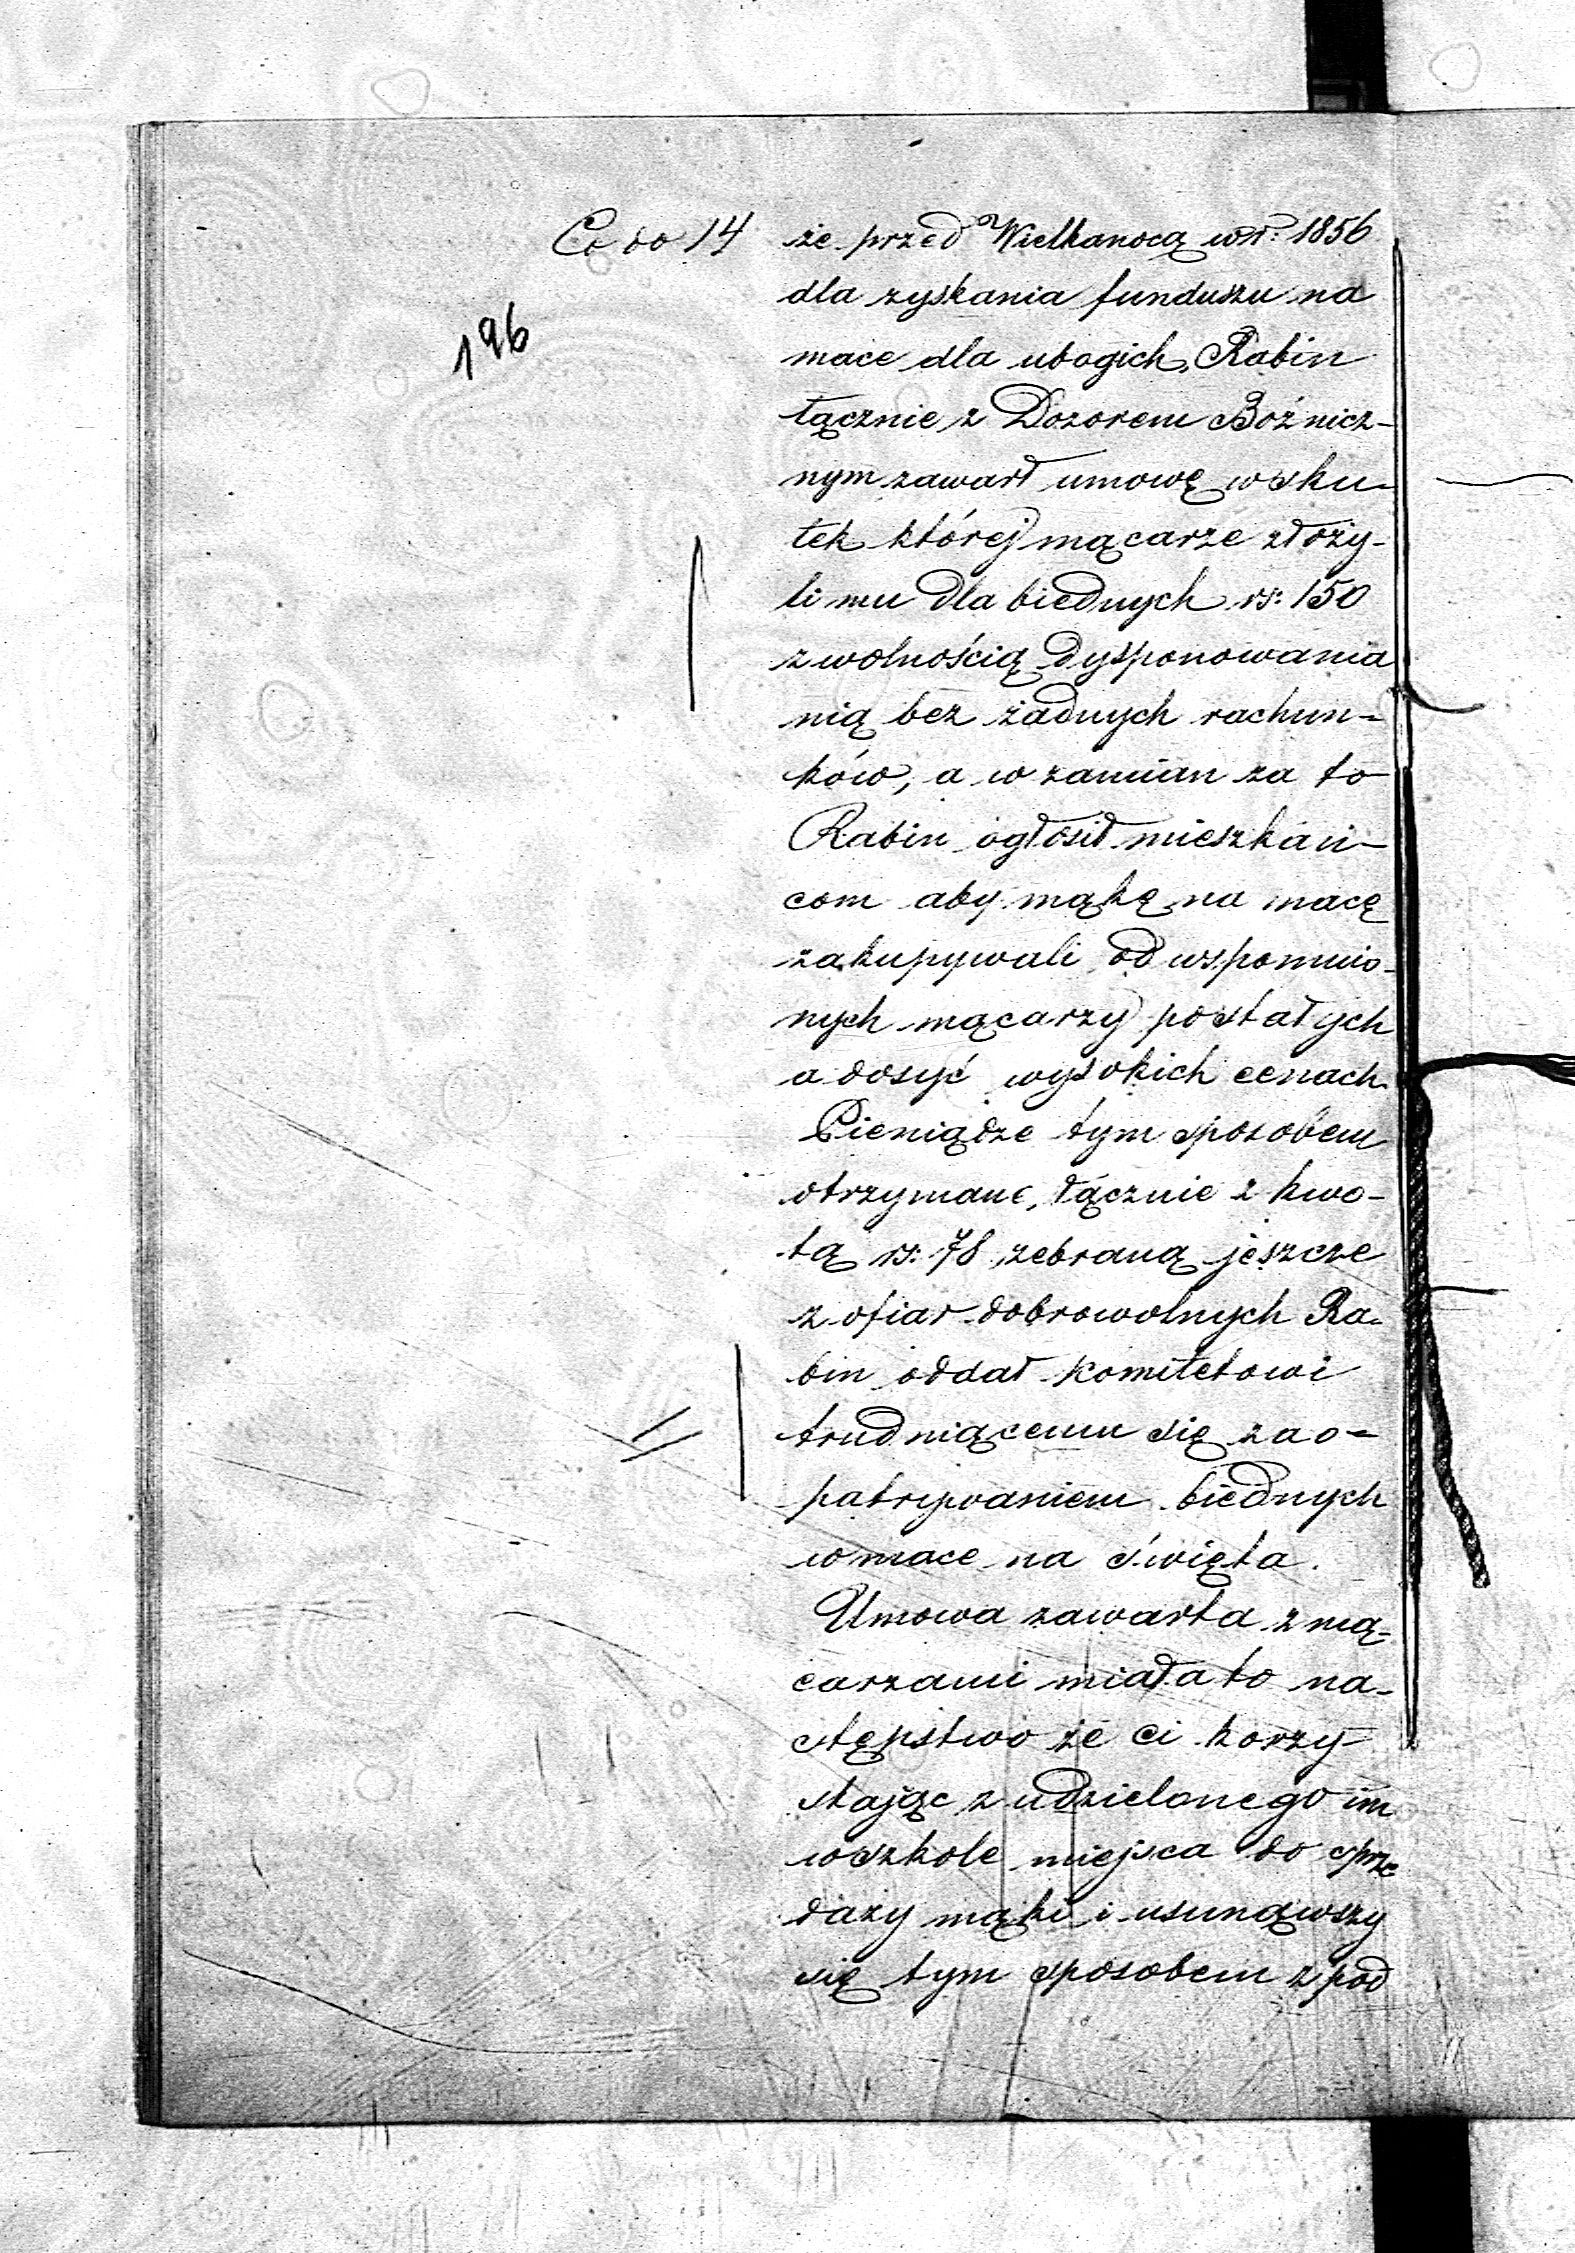 Co do 14
196
że przed Wielkanocą w r: 1856
dla zyskania funduszu na
mace dla ubogich, Rabin
łącznie z Dozorem Bóźnicz-
nym zawarł umowę w sku-
tek której mącarze złoży-
li mu dla biednych rs: 150
z wolnością dysponowania
nią bez żadnych rachun-
ków, a w zamian za to
Rabin ogłosił mieszkań-
com aby mąkę na macę
zakupywali od wspomnio-
nych mącarzy po stałych
a dosyć wysokich cenach.
Pieniądze tym sposobem
otrzymane, łącznie z kwo-
tą rs: 78 zebraną jeszcze
z ofiar dobrowolnych Ra-
bin oddał komitetowi
trudniącemu się zao-
patrywaniem biednych
w mace na święta.
Umowa zawarta z mą-
carzami miała to na-
stępstwo że ci korzy-
stając z udzielonego im
w szkole miejsca do sprze
daży mąki i usunąwszy
się tym sposobem z pod